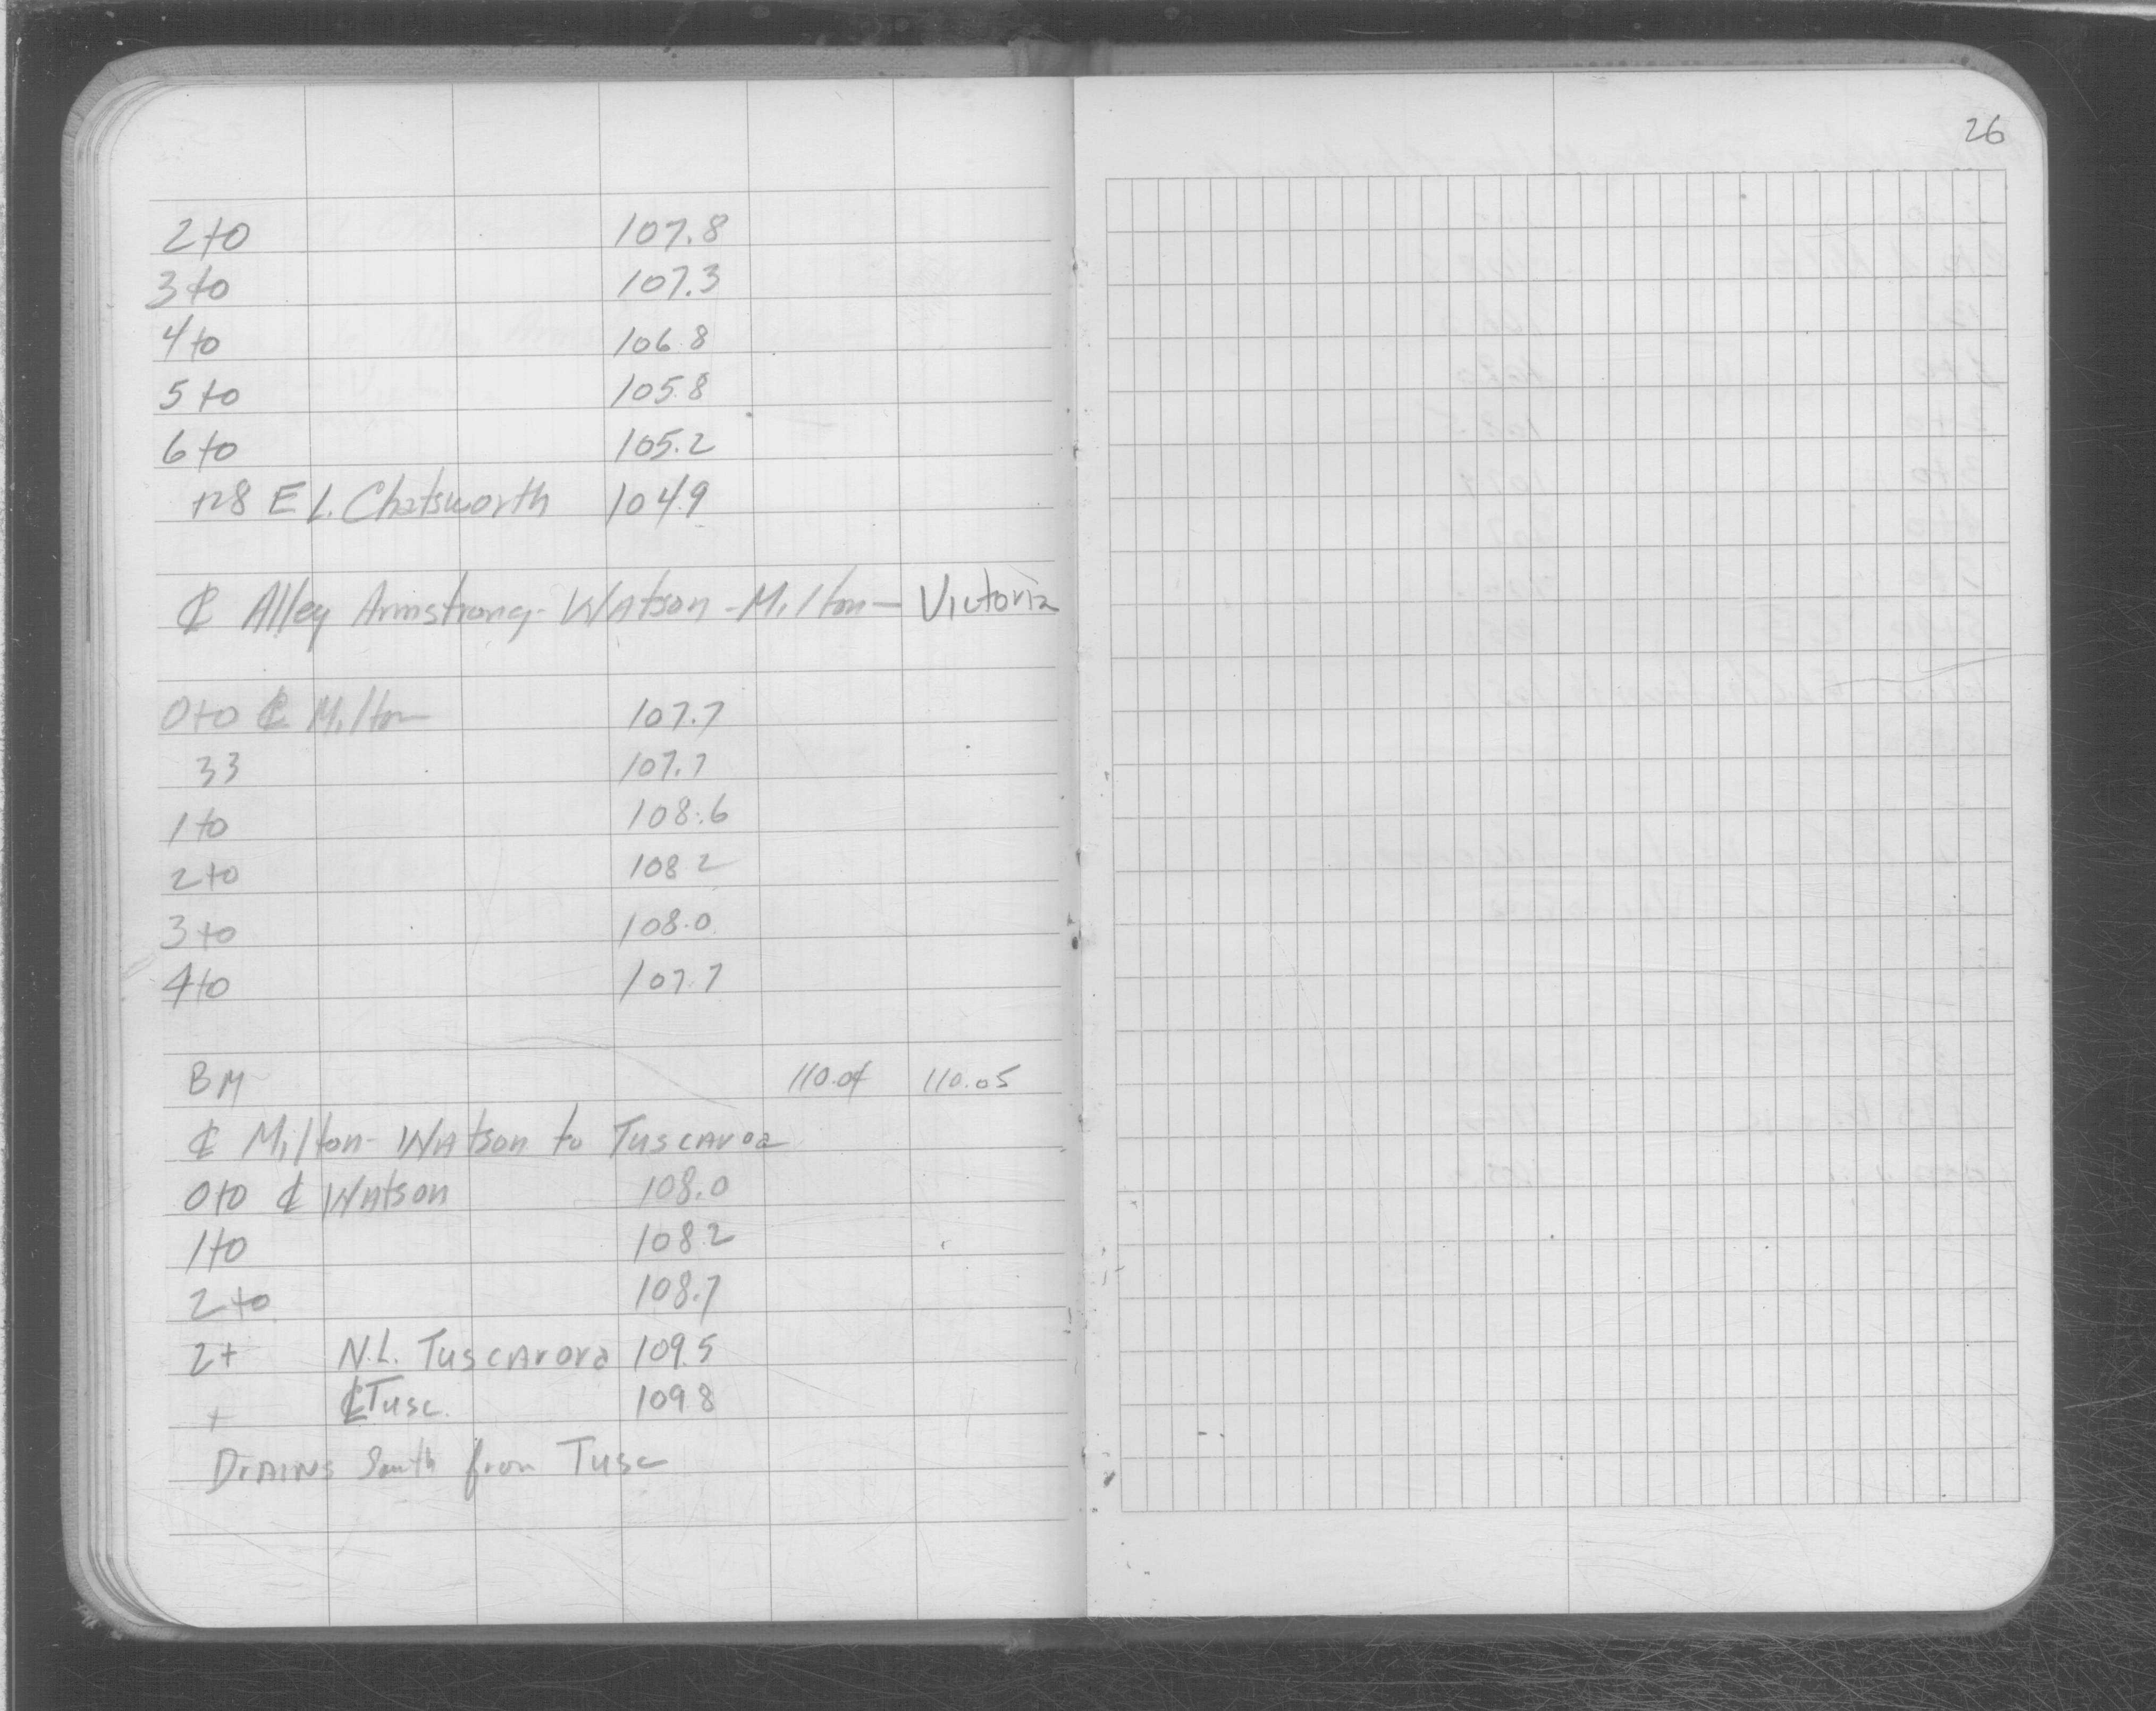 26
2+0 107.8
3+0 107.3
4+0 106.8
5+0 105.8
6+0 105.2
+28 E L. Chatsworth 104.9
℄ Alley Armstrong - Watson - Milton - Victoria
0+0 ℄ Milton 107.7
33 107.7
1+0 108.6
2+0 108.2
3+0 108.0
4+0 107.7
BM 110.04 110.05
℄ Milton - Watson to Tuscaroa
0+0 ℄ Watson 108.0
1+0 108.2
2+0 108.7
2+ N.L. Tuscarora 109.5
+ ℄ Tusc. 109.8
Drains South from Tusc